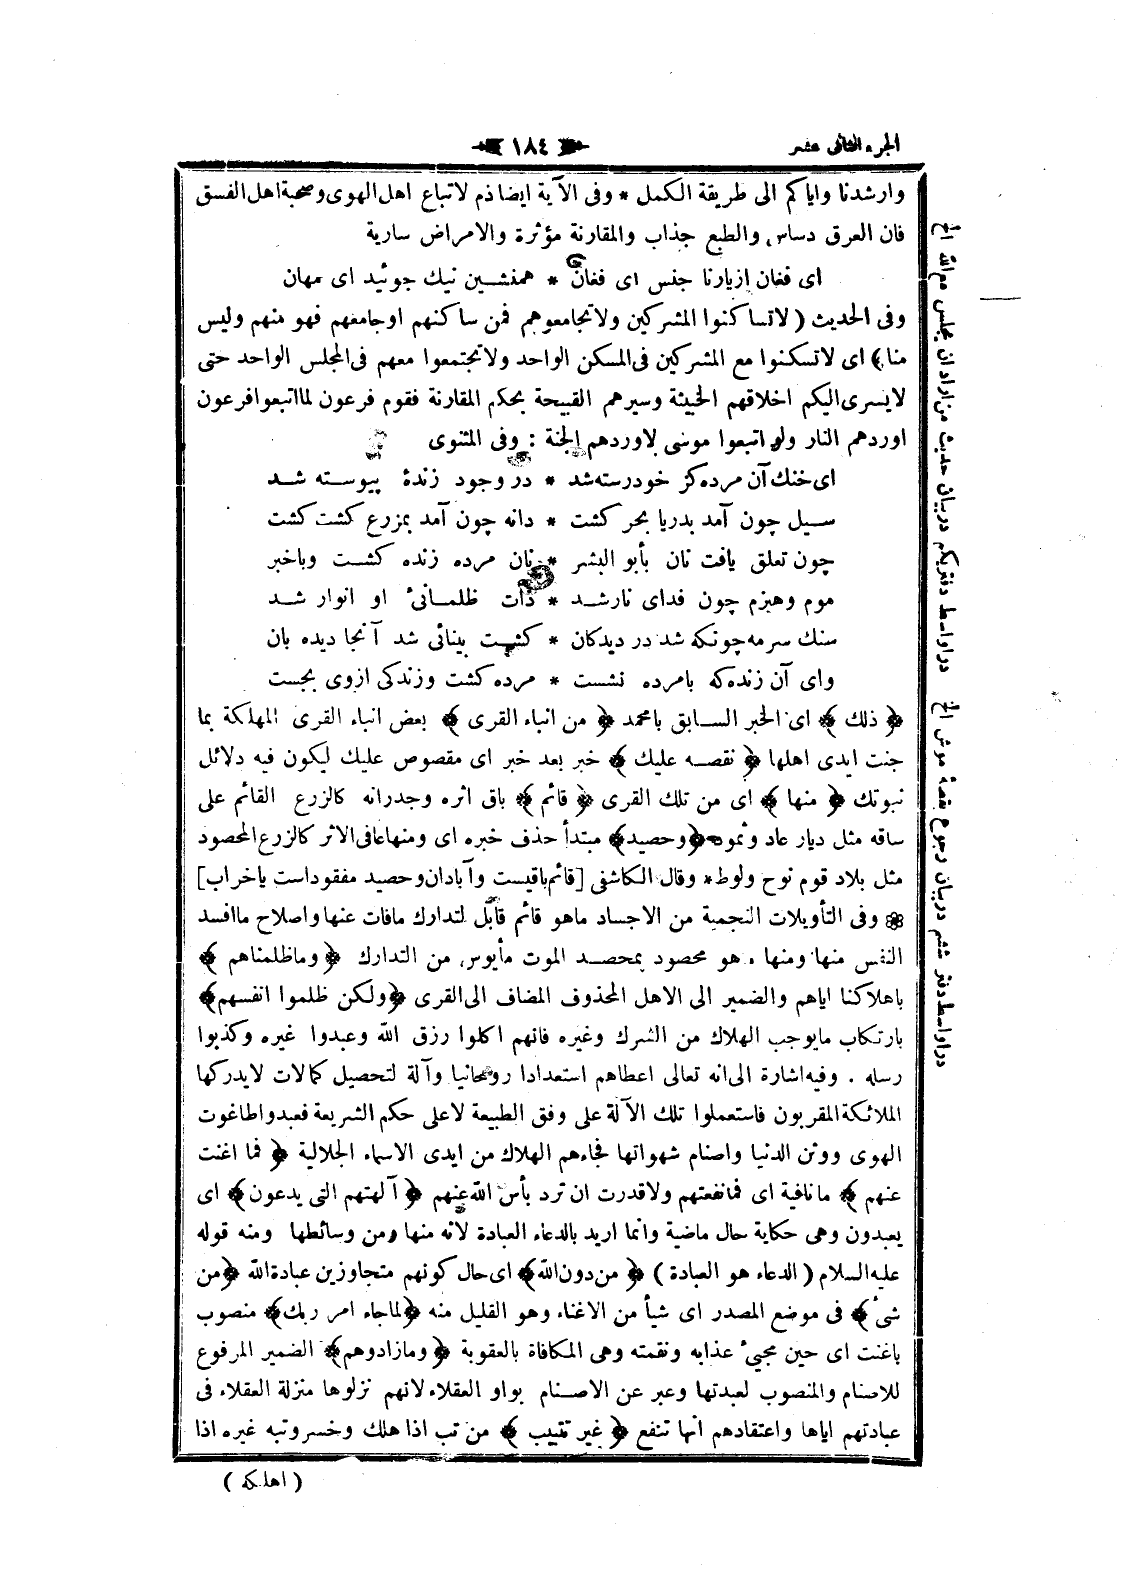 الجزء الثانى عشر
١٨٤
وارشدنا واياكم الى طريقة الكمل * وفى الآية ايضا ذم لاتباع اهل الهوى وصحبة اهل الفسق
فان العرق دساس والطبع جذاب والمقارنة مؤثرة والامراض سارية
اى فغان ازيار نا جنس اى فغان * همنشين نيك جوئيد اى مهان
وفى الحديث ( لاتساكنوا المشركين ولاتجامعوهم فمن ساكنهم اوجامعهم فهو منهم وليس
منا ) اى لاتسكنوا مع المشركين فى المسكن الواحد ولاتجتمعوا معهم فى المجلس الواحد حتى
لايسرى اليكم اخلاقهم الخبيثة وسيرهم القبيحة بحكم المقارنة فقوم فرعون لما اتبعوا فرعون
اوردهم النار ولو اتبعوا موسى لاوردهم الجنة : وفى المثنوى
اى خنك آن مرده كز خود رسته شد * در وجود زندۀ پيوسته شد
سيل چون آمد بدريا بحر كشت * دانه چون آمد بمزرع كشت كشت
چون تعلق يافت نان بأبو البشر * نان مرده زنده كشت وباخبر
موم وهيزم چون فداى نار شد * ذات ظلمانئ او انوار شد
سنك سرمه چونكه شد در ديدكان * كشت بينائى شد آنجا ديده بان
واى آن زنده كه بامرده نشست * مرده كشت وزندكى ازوى بجست
﴿ ذلك ﴾ اى الخبر السابق يامحمد ﴿ من انباء القرى ﴾ بعض انباء القرى المهلكة بما
جنت ايدى اهلها ﴿ نقصه عليك ﴾ خبر بعد خبر اى مقصوص عليك ليكون فيه دلائل
نبوتك ﴿ منها ﴾ اى من تلك القرى ﴿ قائم ﴾ باق اثره وجدرانه كالزرع القائم على
ساقه مثل ديار عاد وثمود ﴿ وحصيد ﴾ مبتدأ حذف خبره اى ومنها عافى الاثر كالزرع المحصود
مثل بلاد قوم نوح ولوط * وقال الكاشفى [ قائم باقيست وآبادان وحصيد مفقود است ياخراب ]
❁ وفى التأويلات النجمية من الاجساد ماهو قائم قابل لتدارك مافات عنها واصلاح ماافسد
النفس منها ومنها ما هو محصود بمحصد الموت مأيوس من التدارك ﴿ وماظلمناهم ﴾
باهلاكنا اياهم والضمير الى الاهل المحذوف المضاف الى القرى ﴿ ولكن ظلموا انفسهم ﴾
بارتكاب مايوجب الهلاك من الشرك وغيره فانهم اكلوا رزق الله وعبدوا غيره وكذبوا
رسله . وفيه اشارة الى انه تعالى اعطاهم استعدادا روحانيا وآلة لتحصيل كمالات لايدركها
الملائكة المقربون فاستعملوا تلك الآلة على وفق الطبيعة لاعلى حكم الشريعة فعبدوا طاغوت
الهوى ووثن الدنيا واصنام شهواتها فجاءهم الهلاك من ايدى الاسماء الجلالية ﴿ فما اغنت
عنهم ﴾ مانافية اى فمانفعتهم ولاقدرت ان ترد بأس الله عنهم ﴿ آلهتهم التى يدعون ﴾ اى
يعبدون وهى حكاية حال ماضية وانما اريد بالدعاء العبادة لانه منها ومن وسائطها ومنه قوله
عليه السلام ( الدعاء هو العبادة ) ﴿ من دون الله ﴾ اى حال كونهم متجاوزين عبادة الله ﴿ من
شئ ﴾ فى موضع المصدر اى شيأ من الاغناء وهو القليل منه ﴿ لما جاء امر ربك ﴾ منصوب
باغنت اى حين مجيئ عذابه ونقمته وهى المكافاة بالعقوبة ﴿ ومازادوهم ﴾ الضمير المرفوع
للاصنام والمنصوب لعبدتها وعبر عن الاصنام بواو العقلاء لانهم نزلوها منزلة العقلاء فى
عبادتهم اياها واعتقادهم انها تنفع ﴿ غير تتبيب ﴾ من تب اذا هلك وخسر وتبه غيره اذا
( اهلكه )
در اواسط دفتر يكم در بيان حديث من اراد ان يجلس مع الله الخ
در اواسط دفتر ششم در بيان رجوع قصۀ موش الخ